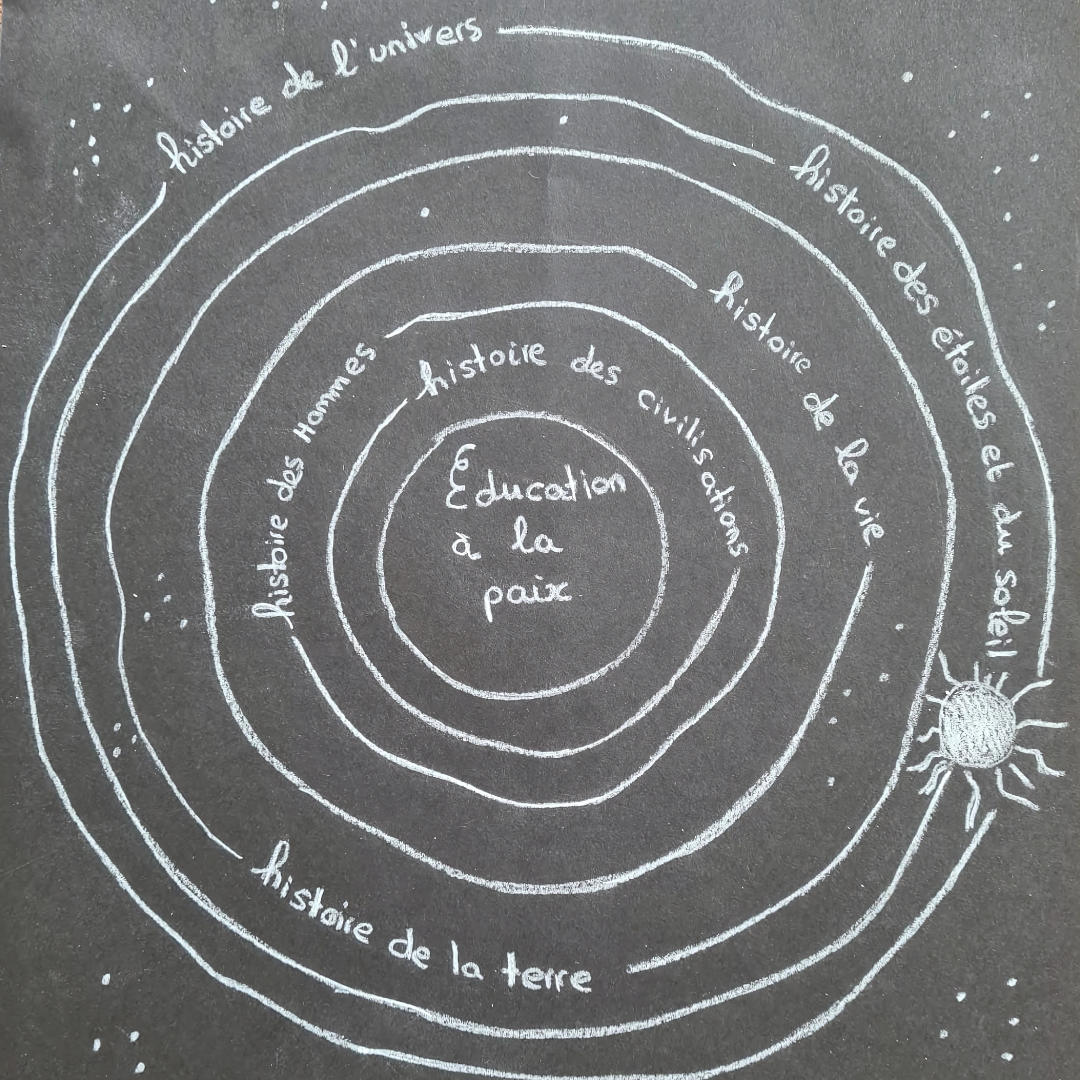 histoire de l'univers
histoire des étoiles et du soleil
histoire de la terre
histoire de la vie
histoire des Hommes
histoire des civilisations
Éducation
à la
paix